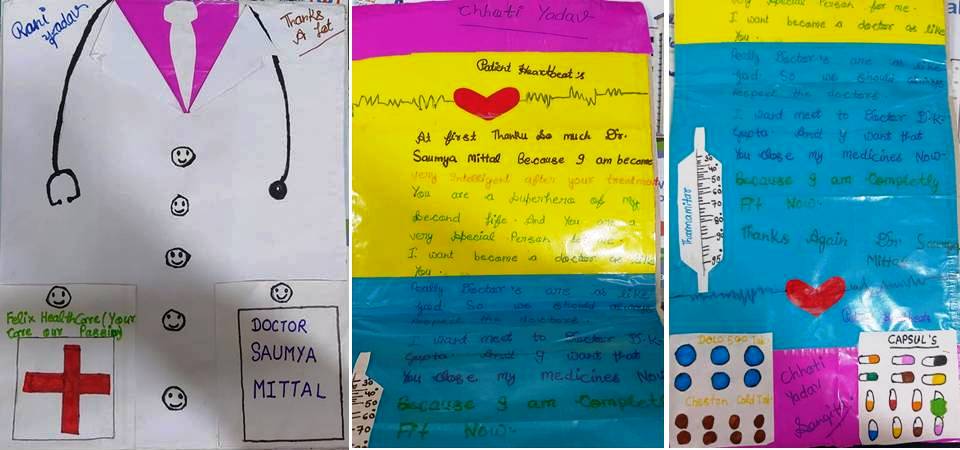 Rani
Yadav
Thanks
A lot
Felix HealthCare (Your
Care our Passion)
DOCTOR
SAUMYA
MITTAL
Chhoti Yadav
Patient Heartbeat's
At first Thanku So much Dr.
Saumya Mittal Because I am become
very Intelligent after your treatment
You are a Superhero of my
Second life. And You are a
very Special Person for me.
I want become a doctor as like
You.
Really Doctor's are as like
God So we should always
respect the doctors.
I ward meet to Doctor D.K.
Gupta And I want that
You close my medicines Now
Because I am Completly
Fit Now.
30
40
50
60
70
very Special Person for me.
I want become a doctor as like
You.
Really Doctor's are as like
God So we should always
respect the doctors.
I ward meet to Doctor D.K.
Gupta And I want that
You close my medicines Now.
Because I am Completly
Fit Now.
Thanks Again Dr Saumya
Mittal
Thermamitar
50
60
70
80
90
95
DOLO 500 Tab
Cheston Cold Tab
Chhoti
Yadav
CAPSUL'S